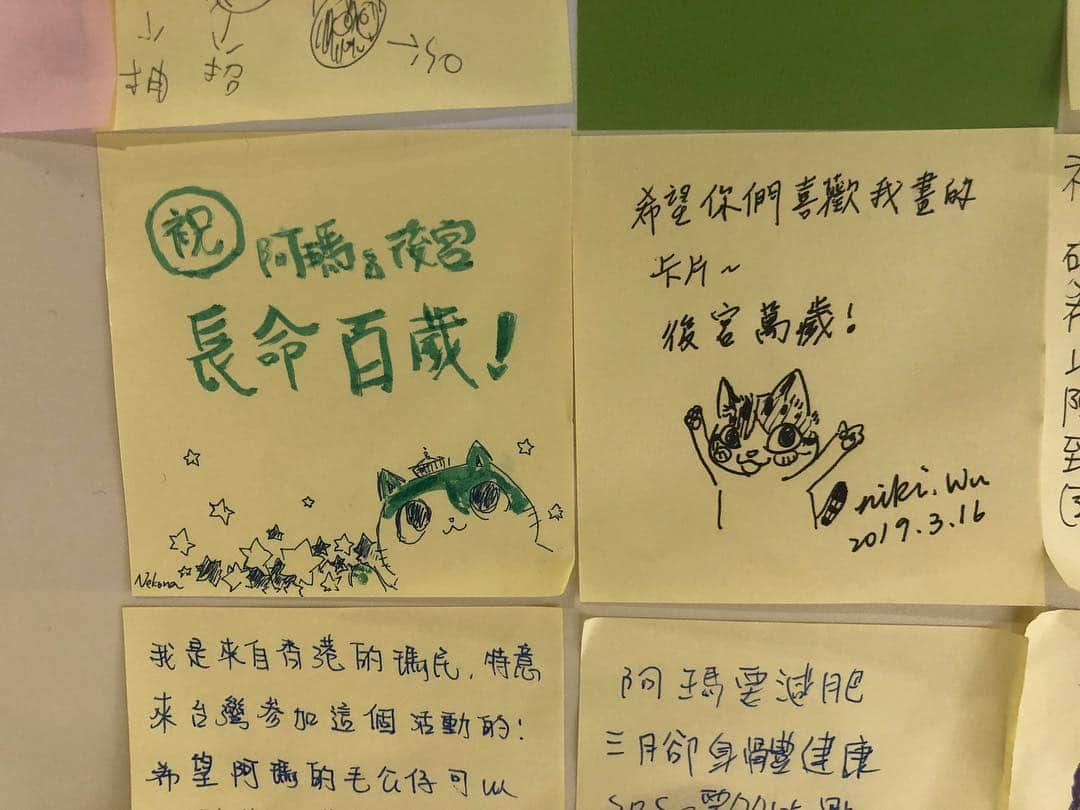 小
抽 招
祝 阿瑪&後宮
長命百歲!
Nekona
希望你們喜歡我畫的
卡片~
後宮萬歲!
niki.Wu
2019.3.16
我是來自香港的瑪民,特意
來台灣參加這個活動的!
希望阿瑪的毛公仔可以
阿瑪要減肥
三月卻身體健康